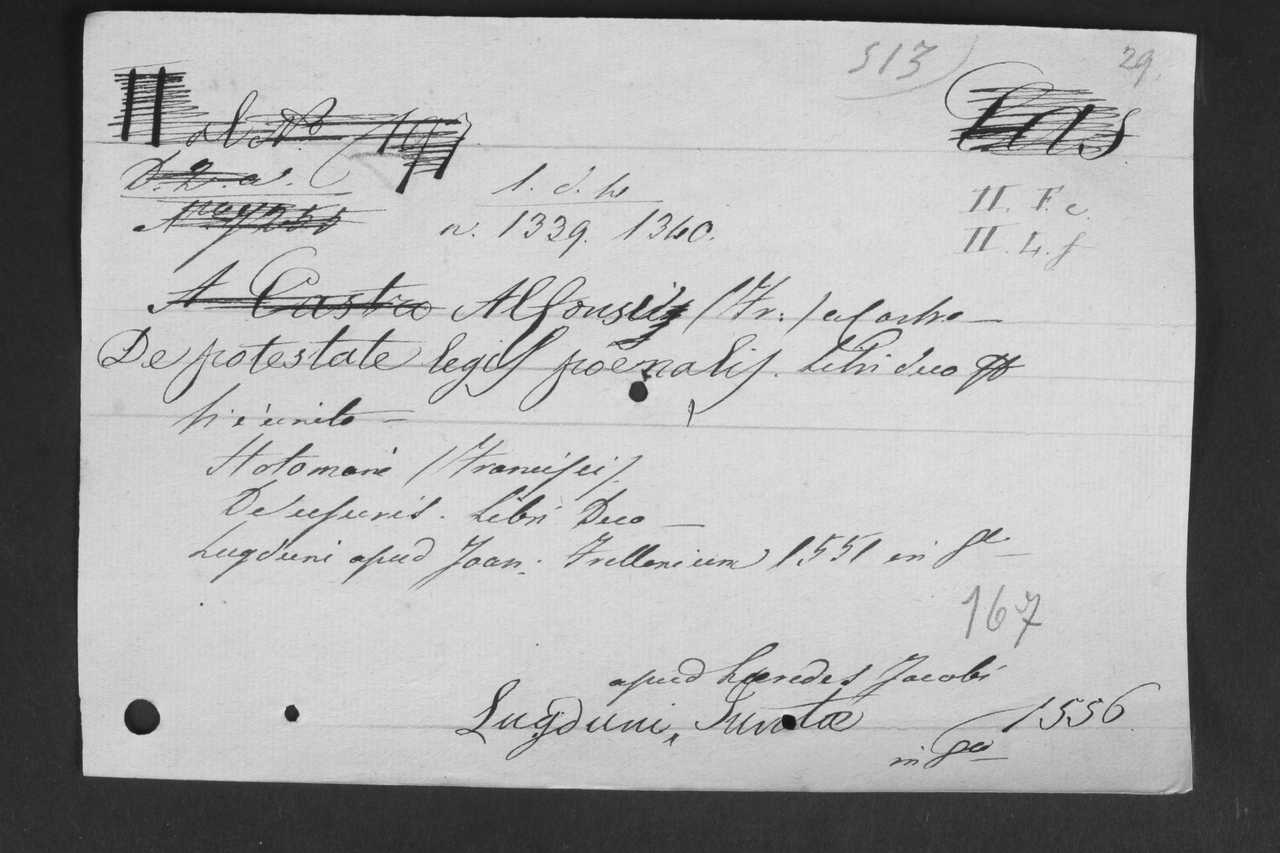 513
29.
Cas
D. 2. a.
1. d. h
n. 1339. 1340.
II. F. c.
II. L. f
A Castro Alfonsii (Fr.) a Castro —
De potestate legis poenalis. Libri duo
h: è unito —
Hotomani (Francisci)
De usuris. Libri Duo —
Lugduni apud Joan. Frellonium 1551 in 8º
167
apud haeredes Jacobi
Lugduni, Juntae 1556
in 8vo